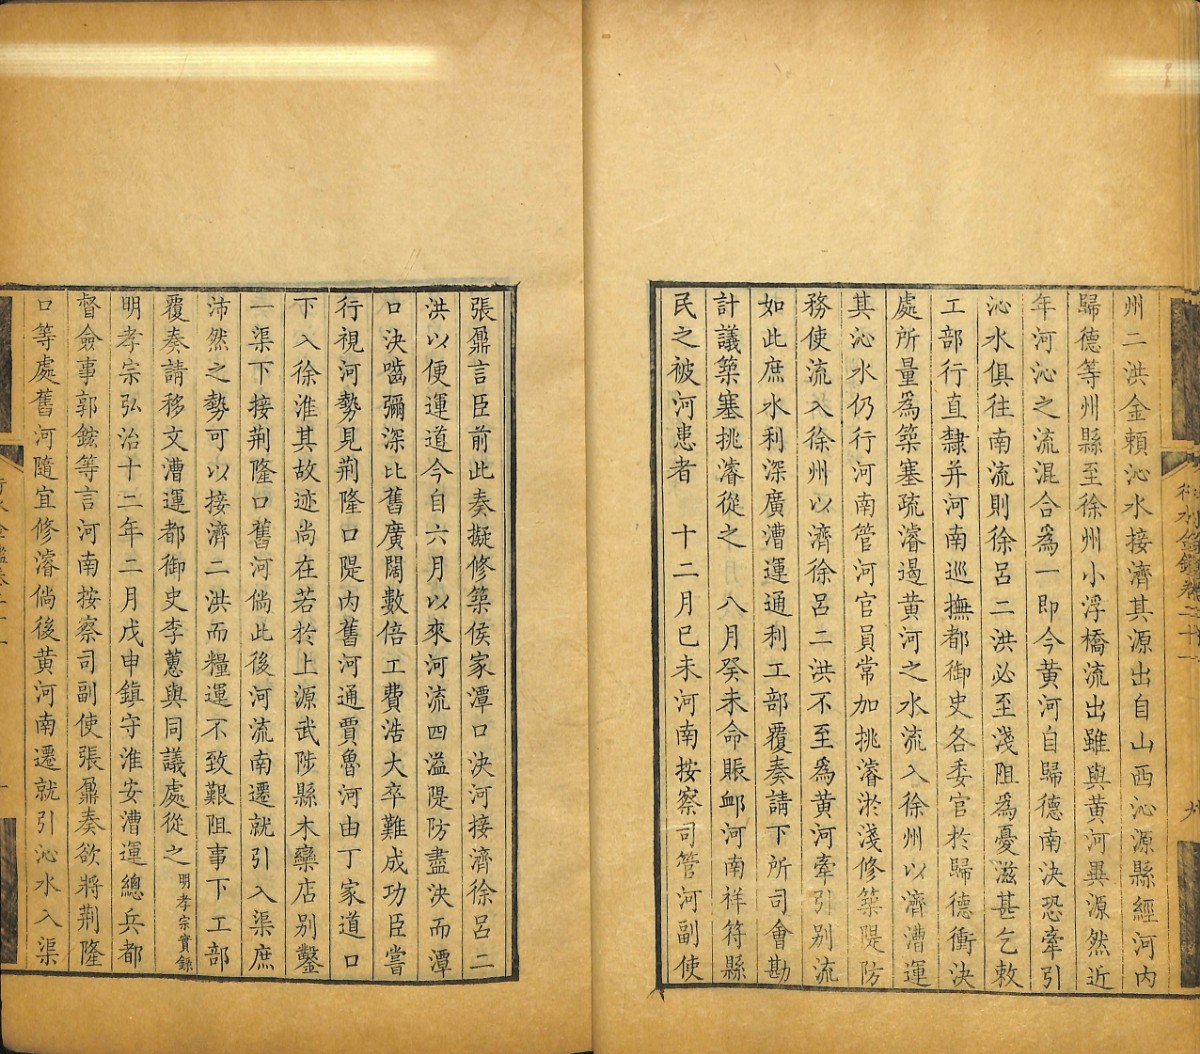 州二洪金賴沁水接濟其源出自山西沁源縣經河內
歸德等州縣至徐州小浮橋流出雖與黃河異源然近
年河沁之流混合爲一即今黃河自歸德南決恐牽引
沁水俱往南流則徐呂二洪必至淺阻爲憂滋甚乞敕
工部行直隸并河南巡撫都御史各委官於歸德衝決
處所量爲築塞疏濬遏黃河之水流入徐州以濟漕運
其沁水仍行河南管河官員常加挑濬淤淺修築隄防
務使流入徐州以濟徐呂二洪不至爲黃河牽引別流
如此庶水利深廣漕運通利工部覆奏請下所司會勘
計議築塞挑濬從之 八月癸未命賑卹河南祥符縣
民之被河患者 十二月已未河南按察司管河副使
張鼐言臣前此奏擬修築侯家潭口決河接濟徐呂二
洪以便運道今自六月以來河流四溢隄防盡決而潭
口決嚙彌深比舊廣闊數倍工費浩大卒難成功臣嘗
行視河勢見荆隆口隄內舊河通賈魯河由丁家道口
下入徐淮其故迹尚在若於上源武陟縣木欒店别鑿
一渠下接荆隆口舊河倘此後河流南遷就引入渠庶
沛然之勢可以接濟二洪而糧運不致艱阻事下工部
覆奏請移文漕運都御史李蕙與同議處從之 明孝宗實錄
明孝宗弘治十二年二月戊申鎮守淮安漕運總兵都
督僉事郭鋐等言河南按察司副使張鼐奏欲將荆隆
口等處舊河隨宜修濬倘後黃河南遷就引沁水入渠